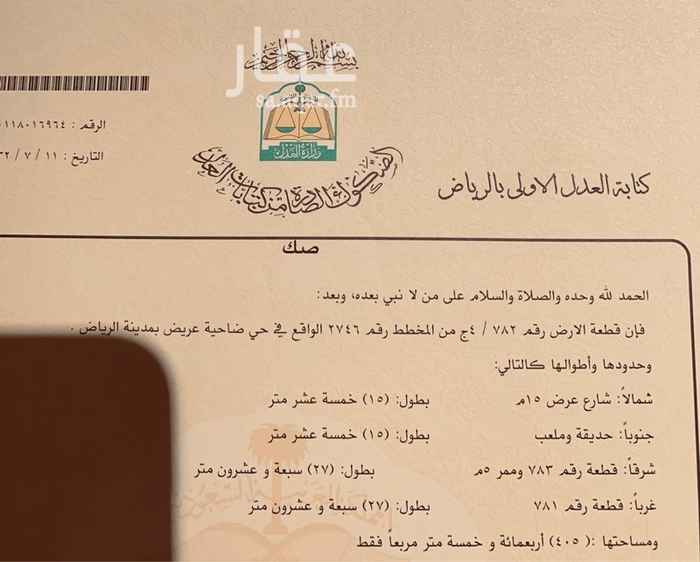 بسم الله الرحمن الرحيم
عقار
sa.aqar.fm
وزارة العدل
الصكوك الصادرة من كتابات العدل
كتابة العدل الاولى بالرياض
الرقم : ٠١١٨٠١٦٩٦٤
التاريخ : ١١ / ٧ / ٣٢
صك
الحمد لله وحده والصلاة والسلام على من لا نبي بعده، وبعد:
فإن قطعة الارض رقم ٧٨٢ / ٤ج من المخطط رقم ٢٧٤٦ الواقع في حي ضاحية عريض بمدينة الرياض .
وحدودها وأطوالها كالتالي:
شمالاً: شارع عرض ١٥م بطول: (١٥) خمسة عشر متر
جنوباً: حديقة وملعب بطول: (١٥) خمسة عشر متر
شرقاً: قطعة رقم ٧٨٣ وممر ٥م بطول: (٢٧) سبعة و عشرون متر
غرباً: قطعة رقم ٧٨١ بطول: (٢٧) سبعة و عشرون متر
ومساحتها :( ٤٠٥) أربعمائة و خمسة متر مربعاً فقط